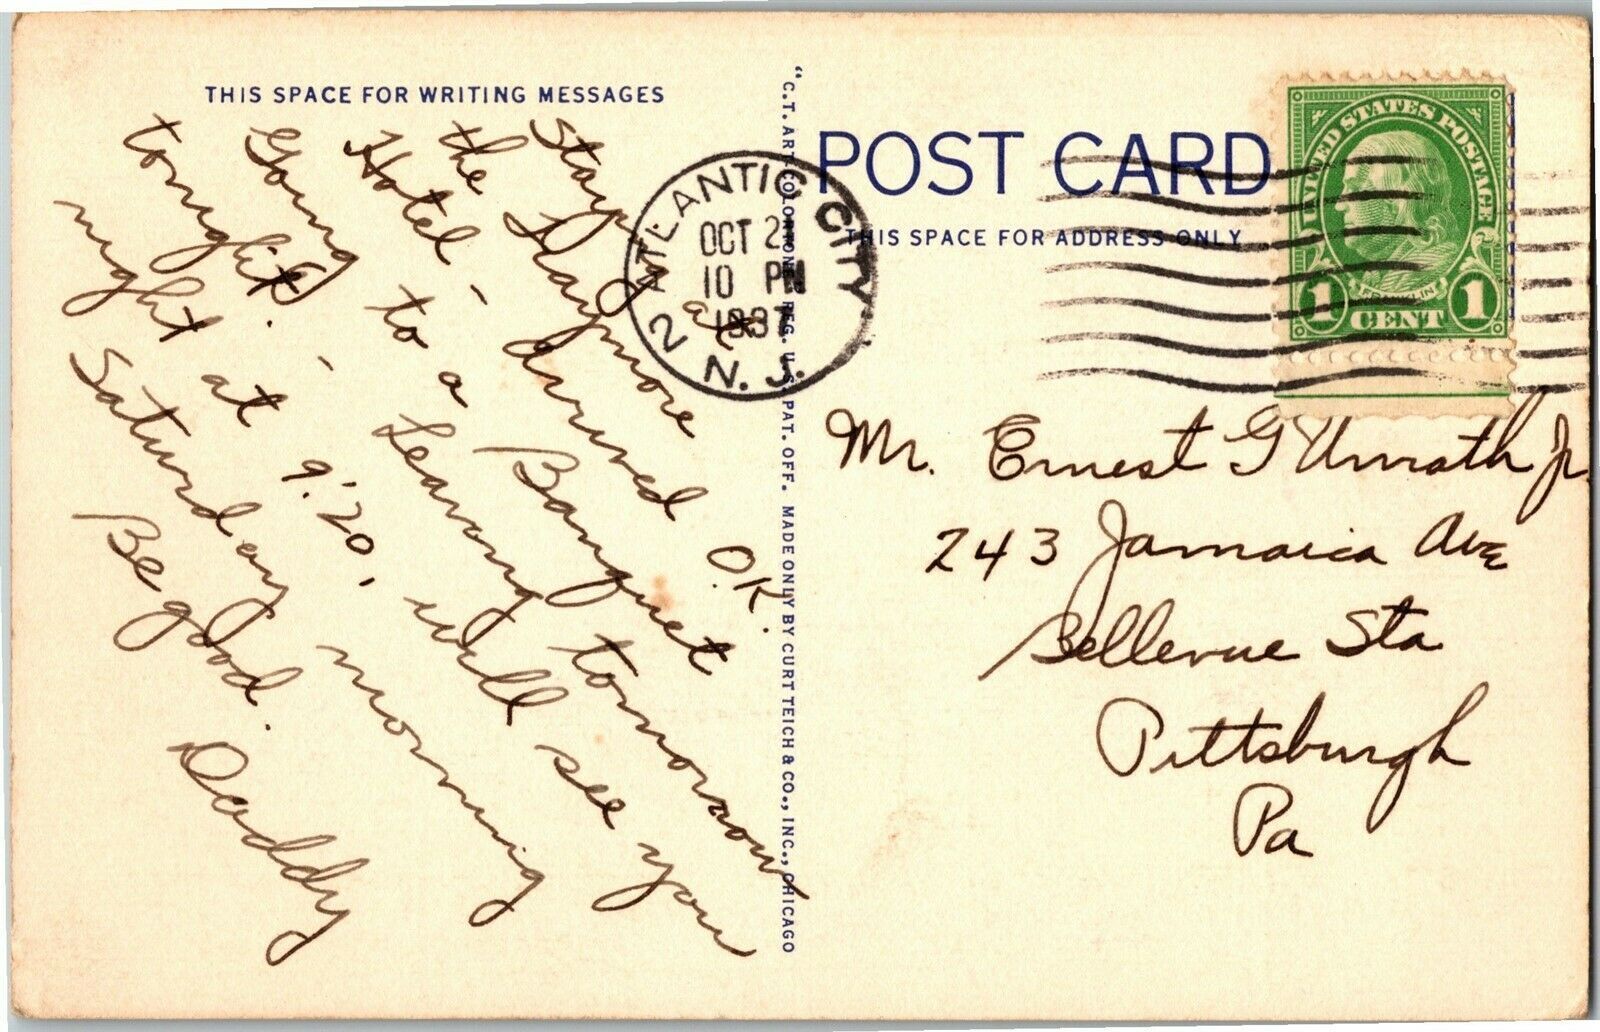 THIS SPACE FOR WRITING MESSAGES
Staying at
the Haymore
Hotel - arrived O.K.
Going to a Banquet
tonight. - Leaving tomorrow
night at 9:20, will see you
Saturday morning
Be good.
Daddy
"C.T. ART-COLORTONE" REG. U.S. PAT. OFF. MADE ONLY BY CURT TEICH & CO., INC., CHICAGO
ATLANTIC CITY
2 N.J.
OCT 2
10 PM
1937
POST CARD
THIS SPACE FOR ADDRESS ONLY
UNITED STATES POSTAGE
FRANKLIN
1 CENT 1
Mr. Ernest G Unrath Jr.
243 Jamaica Ave
Bellevue Sta
Pittsburgh
Pa